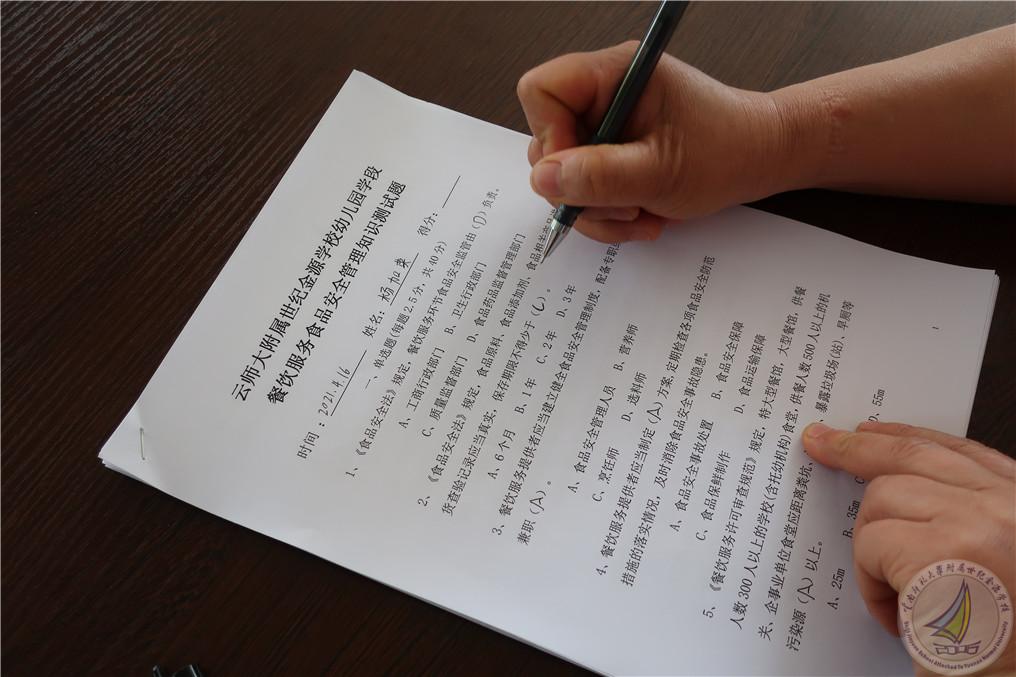 云师大附属世纪金源学校幼儿园学段
餐饮服务食品安全管理知识测试题
时间：2021.4.16 姓名：杨加来 得分：
一、单选题(每题2.5分，共40分)
1、《食品安全法》规定，餐饮服务环节食品安全监管由（D）负责。
A、工商行政部门 B、卫生行政部门
C、质量监督部门 D、食品药品监督管理部门
2、《食品安全法》规定，食品原料、食品添加剂、食品相关产品
货查验记录应当真实，保存期限不得少于（C）。
A、6个月 B、1年 C、2年 D、3年
3、餐饮服务提供者应当建立健全食品安全管理制度，配备专职
兼职（A）。
A、食品安全管理人员 B、营养师
C、烹饪师 D、选料师
4、餐饮服务提供者应当制定（A）方案，定期检查各项食品安全防范
措施的落实情况，及时消除食品安全事故隐患。
A、食品安全事故处置 B、食品安全保障
C、食品保鲜制作 D、食品运输保障
5、《餐饮服务许可审查规范》规定，特大型餐馆，大型餐馆，供餐
人数300人以上的学校(含托幼机构)食堂，供餐人数500人以上的机
关、企事业单位食堂应距离粪坑、暴露垃圾场(站)、旱厕等
污染源（A）以上。
A、25m B、35m C D、55m
1
云南师范大学附属世纪金源学校
Shiji Jinyuan School Attached To Yunnan Normal University